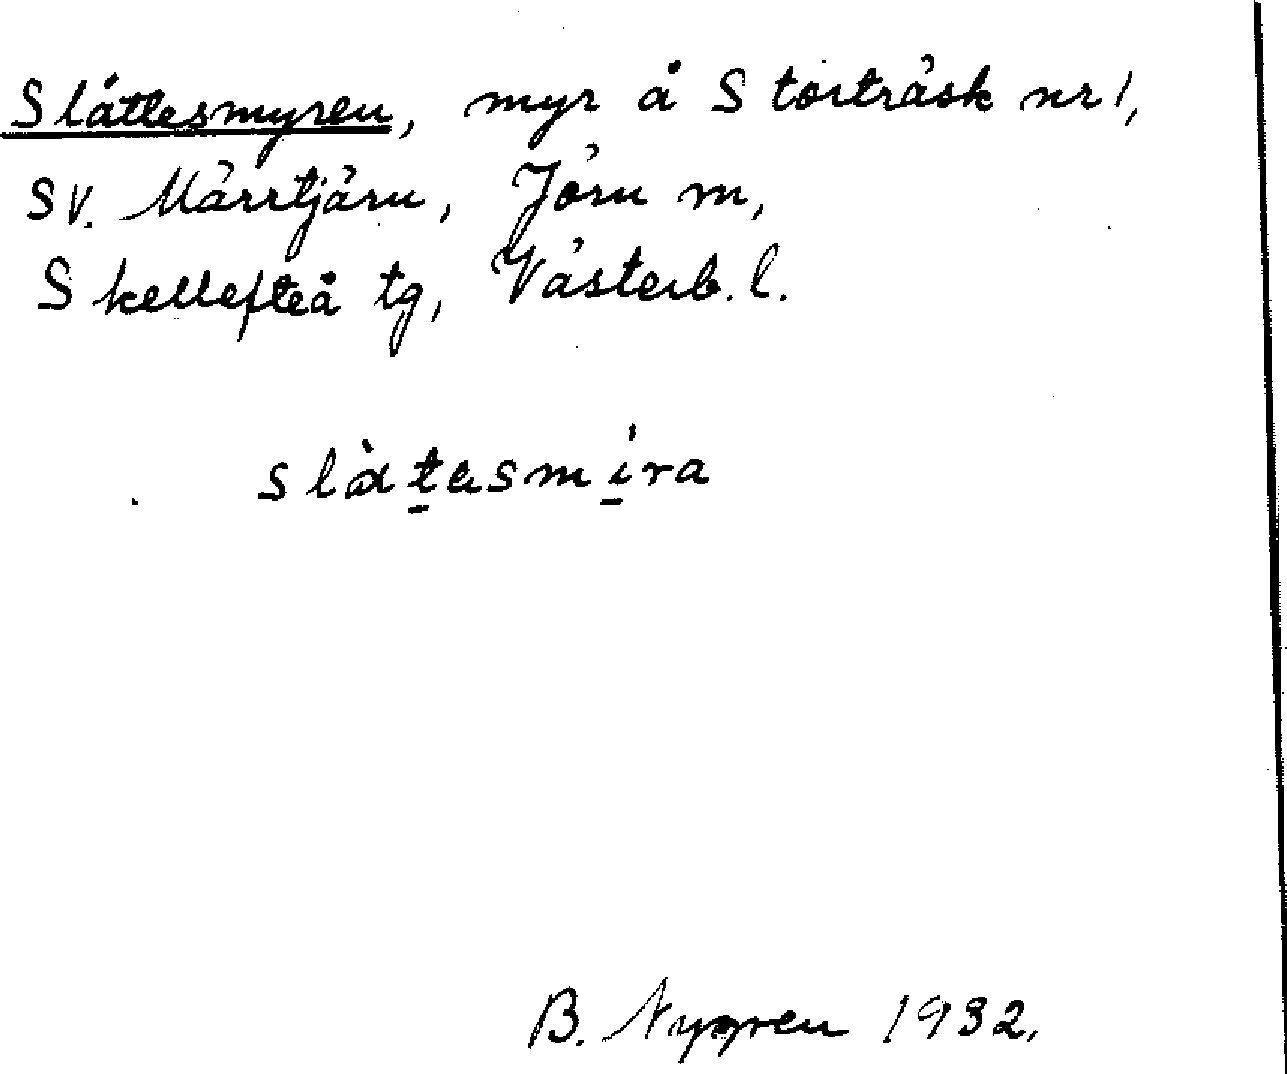 Slåttesmyren, myr å Storträsk nr 1,
SV. Märrtjärn, Jörn m,
Skellefteå tg, Västerb. l.
B. Nygren 1932.